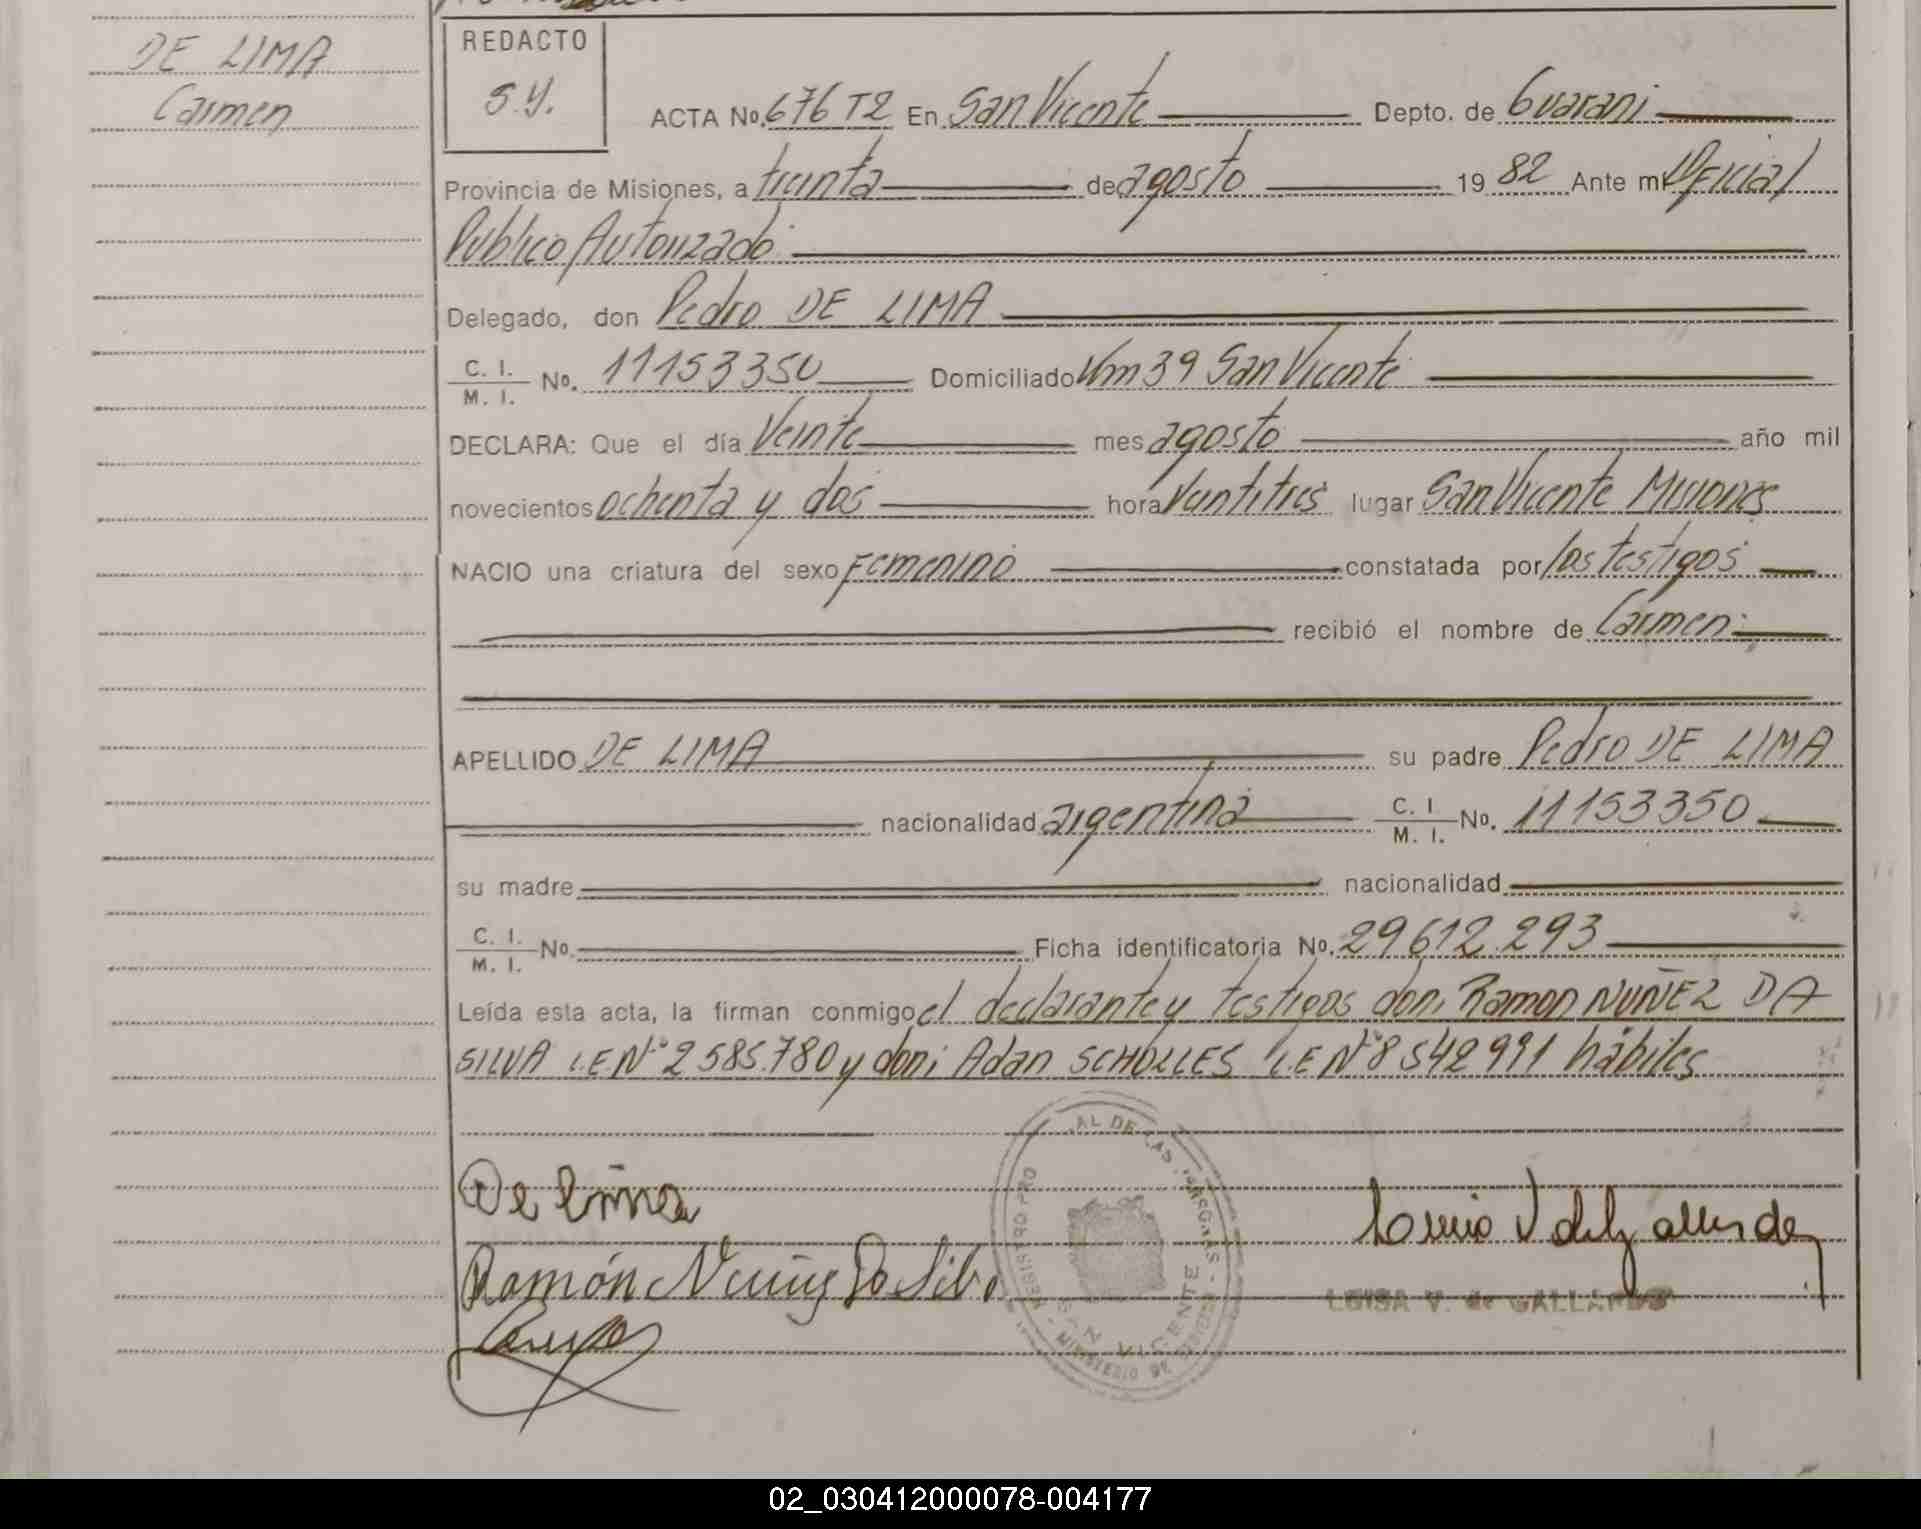 DE LIMA
Carmen
REDACTO
S.Y.
ACTA No. 676 T2 En San Vicente Depto. de Guarani
Provincia de Misiones, a treinta de agosto 19 82 Ante mi Oficial
Publico Autorizado
Delegado, don Pedro DE LIMA
C. I. / M. I. No. 11153350 Domiciliado Km 39 San Vicente
DECLARA: Que el día Veinte mes agosto año mil
novecientos ochenta y dos hora Veintitres lugar San Vicente Misiones
NACIO una criatura del sexo Femenino constatada por los testigos
recibió el nombre de Carmen
APELLIDO DE LIMA su padre Pedro DE LIMA
nacionalidad argentina C. I. / M. I. No. 11153350
su madre nacionalidad
C. I. / M. I. No. Ficha identificatoria No. 29612.293
Leída esta acta, la firman conmigo el declarante y testigos don; Ramon NUÑEZ DA
SILVA L.E.Nº 2585.780 y don; Adan SCHOLLES L.E Nº 8542991 hábiles
De lima
Ramón Nuñez Da Silva
REGISTRO PRO AL DE LAS PERSONAS
SAN VICENTE
MINISTERIO DE GOBIERNO
LUISA V. de GALLARDO
02_030412000078-004177